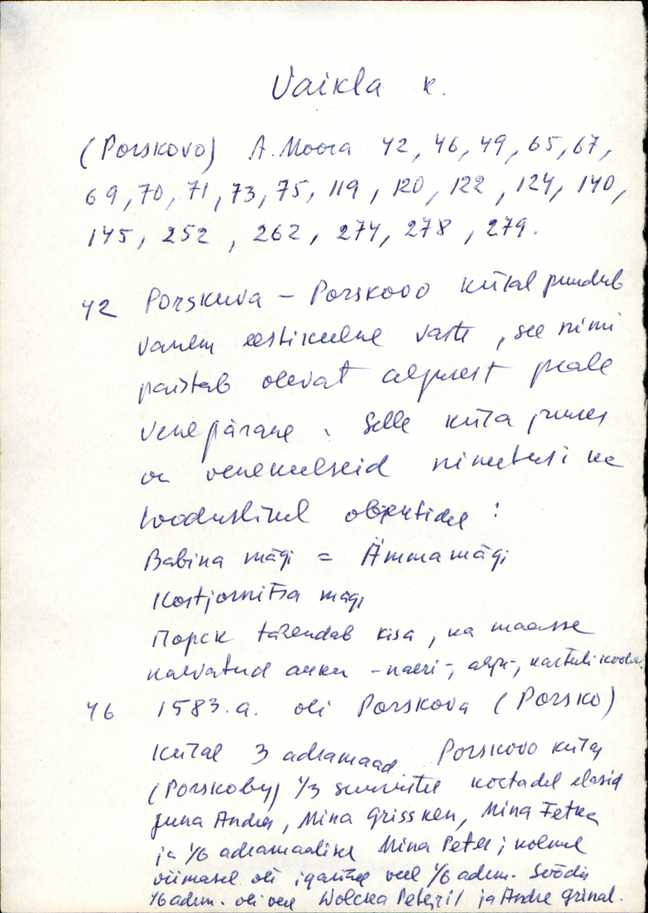 Vaikla k.
(Porskovo) A. Moora 42, 46, 49, 65, 67,
69, 70, 71, 73, 75, 119, 120, 122, 124, 140,
145, 252, 262, 274, 278, 279.
42 Porskuva – Porskovo külal puudub
vanem eestikeelne vaste, see nimi
paistab olevat algusest peale
venepärane. Selle küla juures
on venekeelseid nimetusi ka
looduslikel objektidel:
Babina mägi = Ämmamägi
Kostjornitsa mägi
Порск tähendab ka maasse
kaevatud auku - naeri-, kartuli koobas.
46 1583.a. oli Porskova (Porsko)
külal 3 adramaad. Porskovo külas
(Porskoby) 1/3 suurustel kohtadel elasid
Juna Andres, Mina Grissken, Mina Fetka
ja 1/6 adramaaline Mina Peter; kolmel
viimasel oli igaühel veel 1/6 adrm. Söödis
1/6 adrm. oli veel ja Andre Grinal.